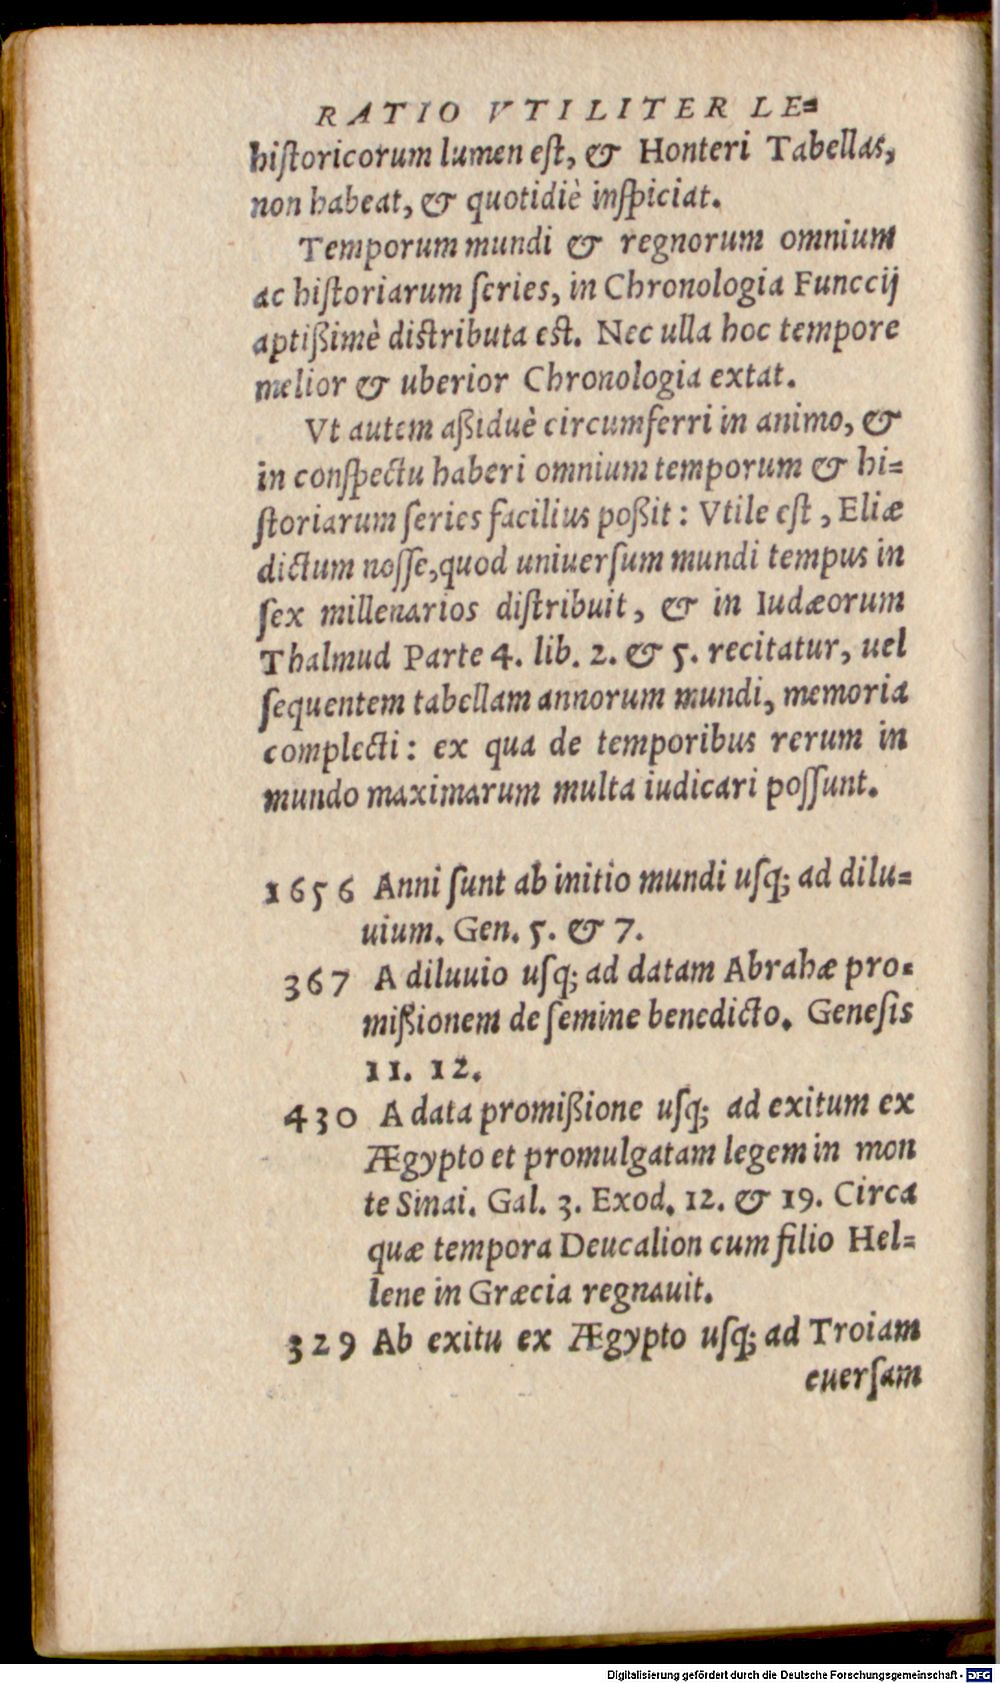 RATIO VTILITER LE=
hiſtoricorum lumen eſt, & Honteri Tabellas,
non habeat, & quotidiè inſpiciat.
Temporum mundi & regnorum omnium
ac hiſtoriarum ſeries, in Chronologia Funccij
aptißimè diſtributa eſt. Nec ulla hoc tempore
melior & uberior Chronologia extat.
Vt autem aßiduè circumferri in animo, &
in conſpectu haberi omnium temporum & hi=
ſtoriarum ſeries facilius poßit: Vtile eſt, Eliæ
dictum noſſe, quod uniuerſum mundi tempus in
ſex millenarios diſtribuit, & in Iudæorum
Thalmud Parte 4. lib. 2. & 5. recitatur, uel
ſequentem tabellam annorum mundi, memoria
complecti: ex qua de temporibus rerum in
mundo maximarum multa iudicari poſſunt.
1656 Anni ſunt ab initio mundi uſq; ad dilu=
uium. Gen. 5. & 7.
367 A diluuio uſq; ad datam Abrahæ pro=
mißionem de ſemine benedicto. Geneſis
11. 12.
430 A data promißione uſq; ad exitum ex
Ægypto et promulgatam legem in mon
te Sinai. Gal. 3. Exod. 12. & 19. Circa
quæ tempora Deucalion cum filio Hel=
lene in Græcia regnauit.
329 Ab exitu ex Ægypto uſq; ad Troiam
euerſam
Digitalisierung gefördert durch die Deutsche Forschungsgemeinschaft - DFG